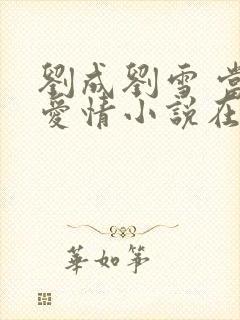 劉成劉雪 當
愛情小說在
華如箏